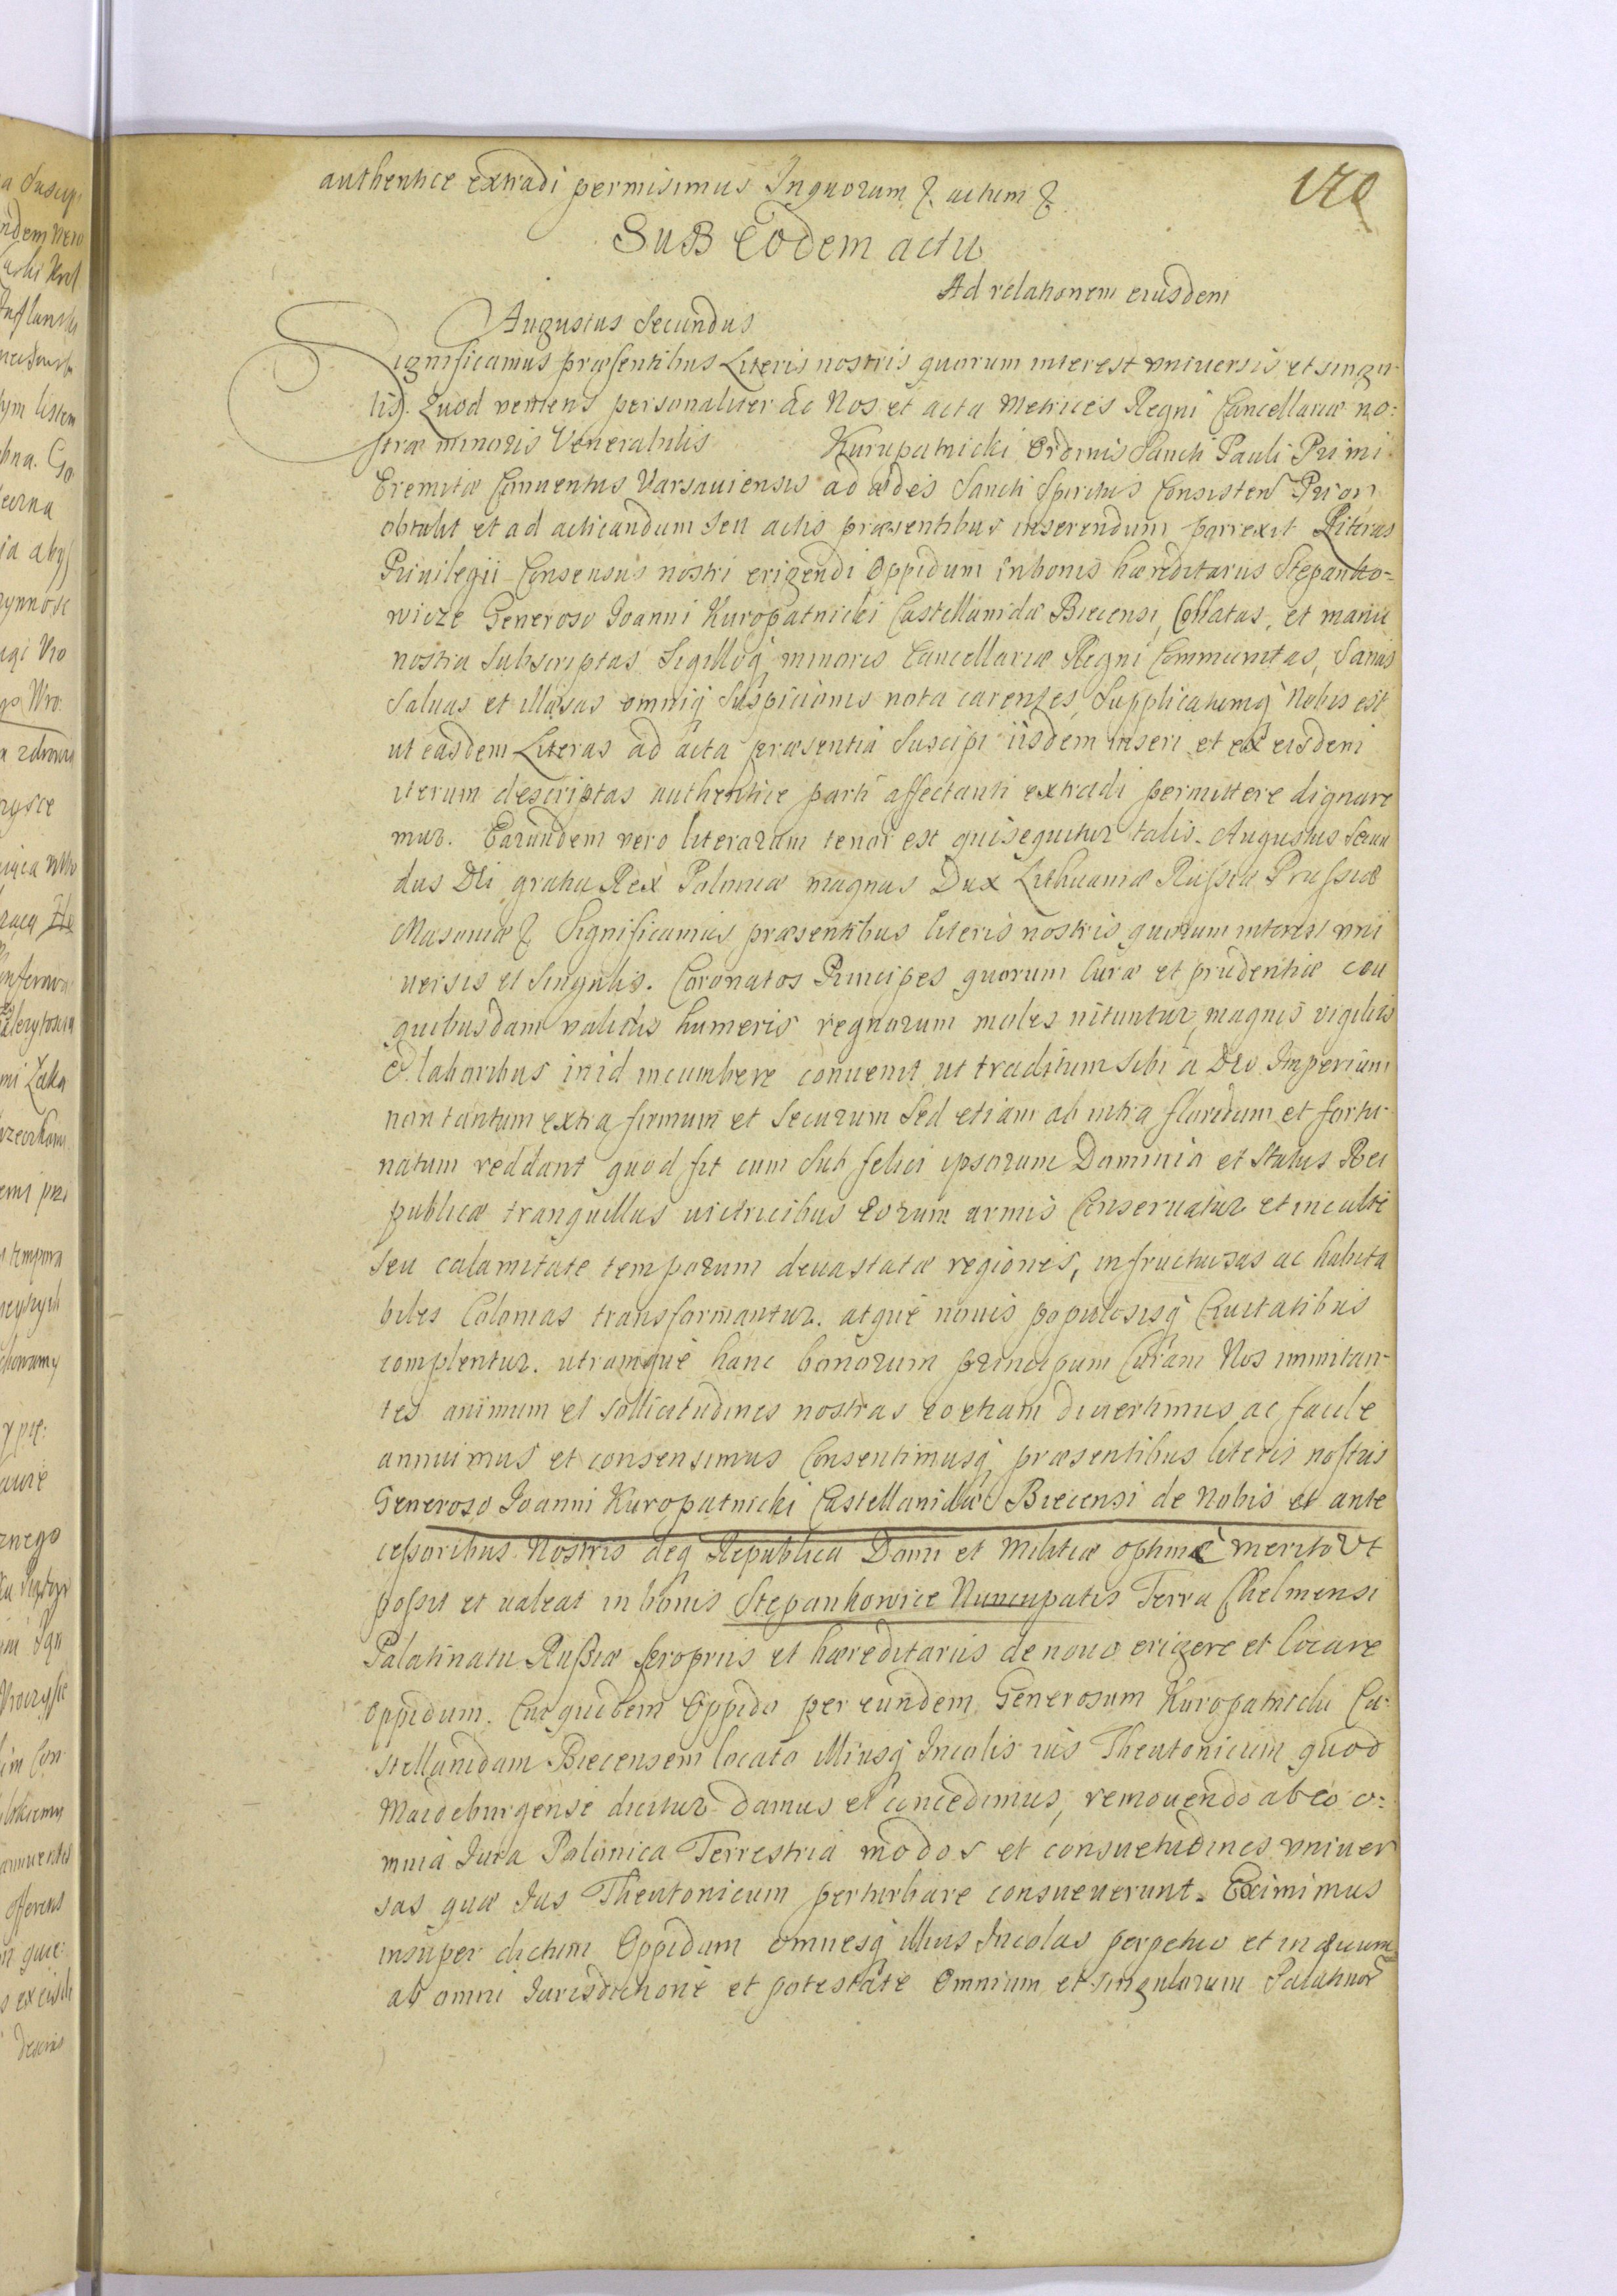 authentice extradi permisimus Inquorum &. actum &.
170
SuB Eodem actu
Ad relationem eiusdem
Augustus Secundus
Significamus præsentibus Literis nostris quorum interest vniuersis et singu-
lis. Quod veniens personaliter ac Nos et acta Metrices Regni Cancellariæ no:
stræ minoris Venerabilis Kurupatnicki Ordinis Sancti Pauli Primi
Eremitæ Conuentus Varsauiensis ad ædes Sancti Spiritus Consisten Prior
obtulit et ad acticandum seu actis præsentibus inserendum porrexit Literas
Priuilegii Consensus nostri erigendi Oppidum in bonis hæreditarus Stepanko=
wicze Generoso Joanni Kuropatnicki Castellanidæ Biecensi, Collatas, et manu
nostra Subscriptas Sigilloq minoris Cancellariæ Regni Communitas, Sanas
Saluas et illæsas omniq Suspicionis nota carentes, Supplicatumq Nobis est
ut easdem Literas ad acta præsentia Suscipi iisdem inseri et ex eisdem
iterum descriptas authentice parti affectanti extradi permittere dignare
mur. Earundem vero literarum tenor est qui sequitur talis. Augustus Secun
dus Dei gratia Rex Poloniæ magnus Dux Lithuaniæ Russiæ Prussiæ
Masouiæ &. Significamus præsentibus literis nostris quorum interest vni
uersis et Singulis. Coronatos Principes quorum Curæ et prudentiæ ceu
quibusdam validis humeris regnorum moles nituntur magnis vigiliis
& laboribus in id incumbere conuenit ut traditum sibi a Deo Imperium
non tantum extra firmum et Securum Sed etiam ab intra floridum et fortu-
natum reddant quod fit cum Sub felici ipsorum Dominio et Status Rei
publicæ tranquillus uictricibus Eorum armis Conseruatur et incultæ
seu calamitate temporum deuastatæ regiones, in fructuosas ac habita
biles Colonias transformantur. atque nouis populosisq Ciuitatibus
complentur. utramque hanc bonorum principum Curam Nos immitan-
tes animum et sollicitudines nostras eo etiam diuertimus ac facile
annuimus et consensimus Consentimusq præsentibus literis nostris
Generoso Joanni Kuropatnicki Castellanidæ Biecensi de Nobis et ante
cessoribus Nostris deq Republica Domi et Militiæ optime merito Vt
possit et ualeat in bonis Stepankowice Nuncupatis Terra Chelmensi
Palatinatu Russiæ propriis et hæreditariis de nouo erigere et locare
Oppidum. Cui quidem Oppido per eundem Generosum Kuropatnicki Ca-
stellanidam Biecensem locato illiusq Incolis ius Theutonicum quod
Maideburgense dicitur damus et concedimus, remouendo ab eo o:
mnia Jura Polonica Terrestria modos et consuetudines vniuer
sas quæ Jus Theutonicum perturbare consueuerunt. Eximimus
insuper dictum Oppidum omnesq illius Incolas perpetuo et in æuum
ab omni Jurisdictione et potestate Omnium et singulorum Palatinor